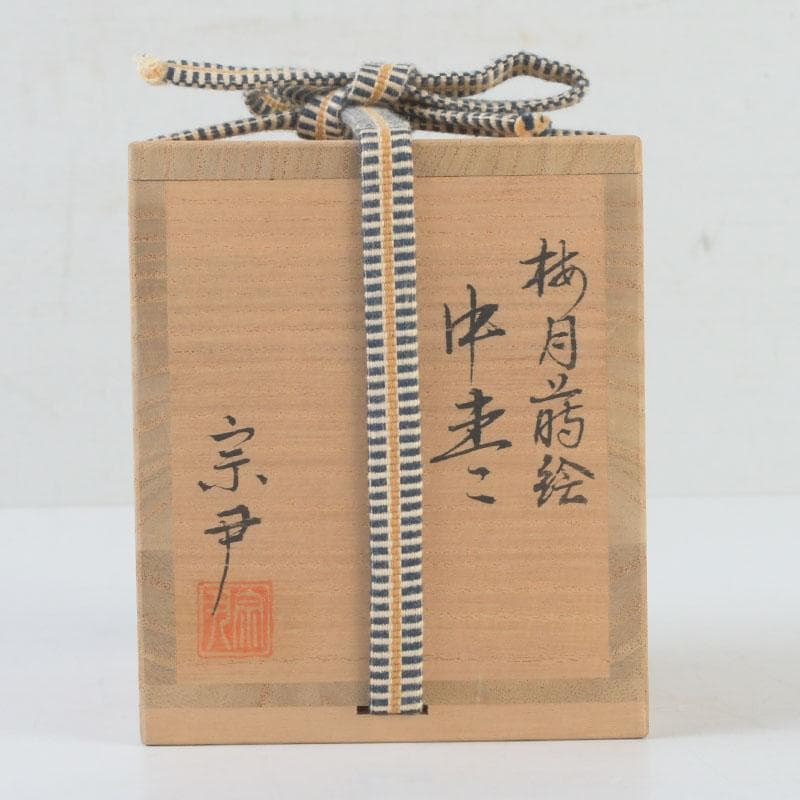 梅月蒔絵
中棗
宗尹
宗尹